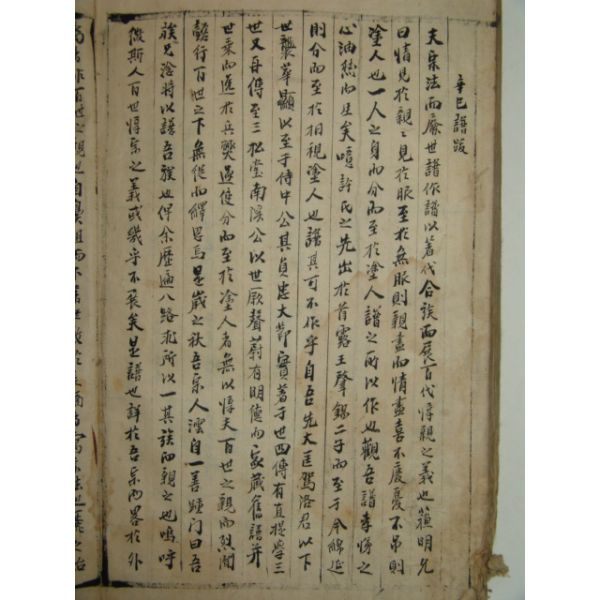 辛巳譜跋
夫宗法而廢世譜作譜以著代合族而展百代惇親之義也蘓明允
曰情見於親〻見於服至於無服則親盡而情盡喜不慶憂不吊則
塗人也一人之身而分而至於塗人譜之所以作也觀吾譜孝悌之
心油然而生矣噫許氏之先出於首露王聲錫二子而至于今綿延
則分而至於相視塗人也譜其可不作乎自吾先大匡駕洛君以下
世襲華顯以至于侍中公其貞忠大節實著于世四傳有直提學三
世又再傳至三松堂南溪公以世厥聲蔚有明德而家藏舊譜并
世乘而逸於兵燹過從分而至於塗人者無以惇夫百世之親而烈聞
懿行百世之下無從而繹思焉是歲之秋吾宗人澐自一善踵門曰吾
族兄淦將以譜吾族也俾余歷遍八路死所以一其族而親之也嗚呼
微斯人百世惇宗之義或幾乎不畏矣是譜也詳於吾宗而畧於外